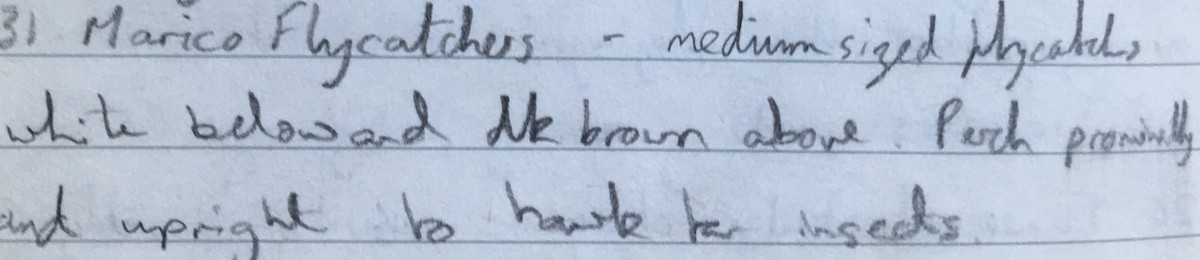 31 Marico Flycatchers - medium sized flycatchs
white below and dk brown above. Perch prominently
and upright to hawk for insects.